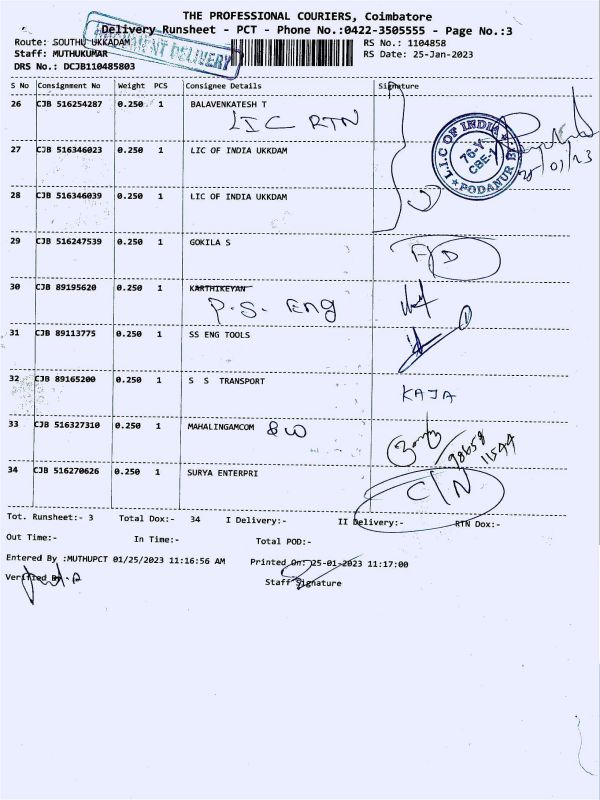 THE PROFESSIONAL COURIERS, Coimbatore
Delivery Runsheet - PCT - Phone No.:0422-3505555 - Page No.:3
Route: SOUTHU UKKADAM RS No.: 1104858
Staff: MUTHUKUMAR RS Date: 25-Jan-2023
DRS No.: DCJB110485803
DELIVERY
S No Consignment No Weight PCS Consignee Details Signature
26 CJB 516254287 0.250 1 BALAVENKATESH T
LIC RTN
27 CJB 516346023 0.250 1 LIC OF INDIA UKKDAM
L.I.C OF INDIA 76-V CBE-1 PODANUR
25/01/23
28 CJB 516346039 0.250 1 LIC OF INDIA UKKDAM
29 CJB 516247539 0.250 1 GOKILA S F/D
30 CJB 89195620 0.250 1 KARTHIKEYAN
P.S. Eng
31 CJB 89113775 0.250 1 SS ENG TOOLS
32 CJB 89165200 0.250 1 S S TRANSPORT
KAJA
33 CJB 516327310 0.250 1 MAHALINGAMCOM
98658
34 CJB 516270626 0.250 1 SURYA ENTERPRI
C/N
Tot. Runsheet:- 3 Total Dox:- 34 I Delivery:- II Delivery:- RTN Dox:-
Out Time:- In Time:- Total POD:-
Entered By :MUTHUPCT 01/25/2023 11:16:56 AM Printed On: 25-01-2023 11:17:00
Verified By.
Staff Signature